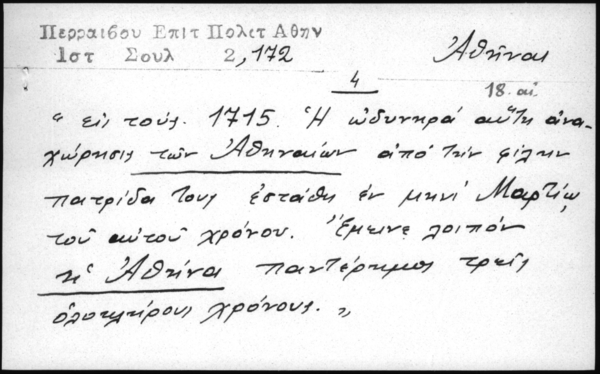 Περραιβου Επιτ Πολετ Αθην
1στ Σουλ 2,172
Ἀθῆναι
4
18. αἰ
" εἰς τούς. 1715. Ἡ ὠδυνηρά αὕτη ἀνα-
χώρησις τῶν Ἀθηναίων ἀπό τήν φίλην
πατρίδα τους ἐστάθη ἐν μηνί Μαρτίῳ
τοῦ αὐτοῦ χρόνου. Ἔμεινε λοιπόν
ἡ Ἀθήνα παντέρημος τρεῖς
ὁλοκλήρους χρόνους. "